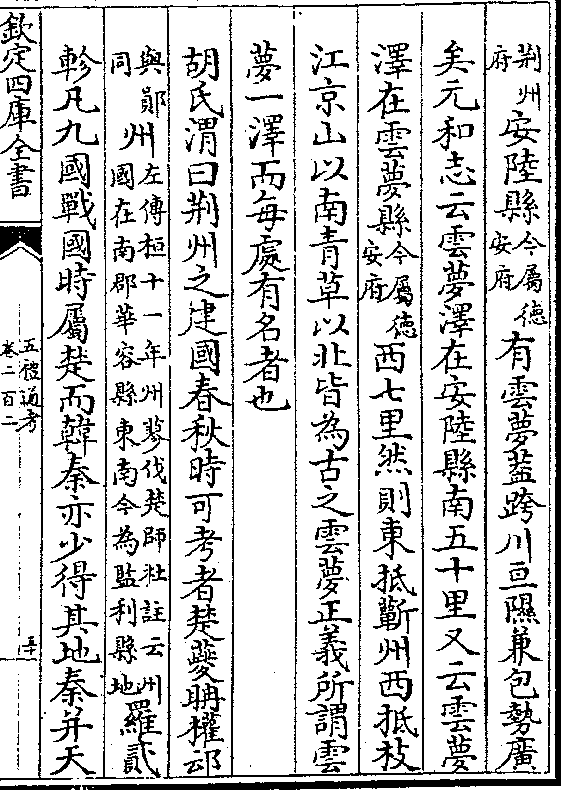 荆州府安陸縣今屬德安府有雲夢葢跨川亘隰兼包勢廣
矣元和志云雲夢澤在安陸縣南五十里又云雲夢
澤在雲夢縣今屬德安府西七里然則東抵蘄州西抵枝
江京山以南青草以北皆為古之雲夢正義所謂雲
夢一澤而每處有名者也
胡氏渭曰荆州之建國春秋時可考者楚䕫聃權邔
與鄖同州左傳桓十一年州蓼伐楚師杜註云州國在南郡華容縣東南今為監利縣地羅貳
軫凡九國戰國時屬楚而韓秦亦少得其地秦并天
欽定四庫全書
五禮通考
卷二百二
五十